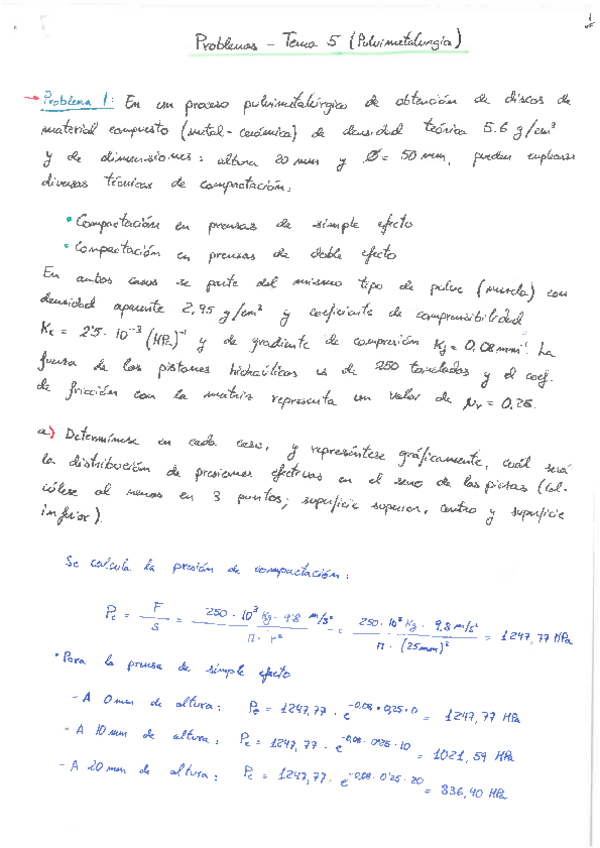 1
Problemas - Tema 5 (Pulvimetalurgia)
Problema 1: En un proceso pulvimetalúrgico de obtención de discos de
material compuesto (metal-cerámica) de densidad teórica 5.6 g/cm³
y de dimensiones: altura 20 mm y Ø = 50 mm, pueden emplearse
diversas técnicas de compactación:
• Compactación en prensas de simple efecto
• Compactación en prensas de doble efecto
En ambos casos se parte del mismo tipo de polvo (mezcla) con
densidad aparente 2,95 g/cm³ y coeficiente de compresibilidad
Kc = 2'5 · 10⁻³ (MPa)⁻¹ y de gradiente de compresión Kg = 0,08 mm⁻¹. La
fuerza de los pistones hidráulicos es de 250 toneladas y el coef.
de fricción con la matriz representa un valor de μr = 0,25.
a) Determínese en cada caso, y represéntese gráficamente, cuál será
la distribución de presiones efectivas en el seno de las piezas (cal-
cúlese al menos en 3 puntos; superficie superior, centro y superficie
inferior).
Se calcula la presión de compactación:
Pc = F/S = 250 · 10³ Kg · 9'8 m/s² / π · r² = 250 · 10³ Kg · 9,8 m/s² / π · (25mm)² = 1247,77 MPa
• Para la prensa de simple efecto
- A 0 mm de altura: Pe = 1247,77 · e^-0,08 · 0,25 · 0 = 1247,77 MPa
- A 10 mm de altura: Pe = 1247,77 · e^-0,08 · 0'25 · 10 = 1021,59 MPa
- A 20 mm de altura: Pe = 1247,77 · e^-0,08 · 0'25 · 20 = 836,40 MPa